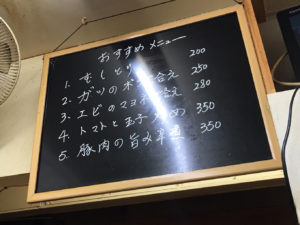 おすすめメニュー
1. むしとり 200
2. ガツの和え 250
3. エビのマヨ和え 280
4. トマトと玉子炒め 350
5. 豚肉の旨み辛煮 350